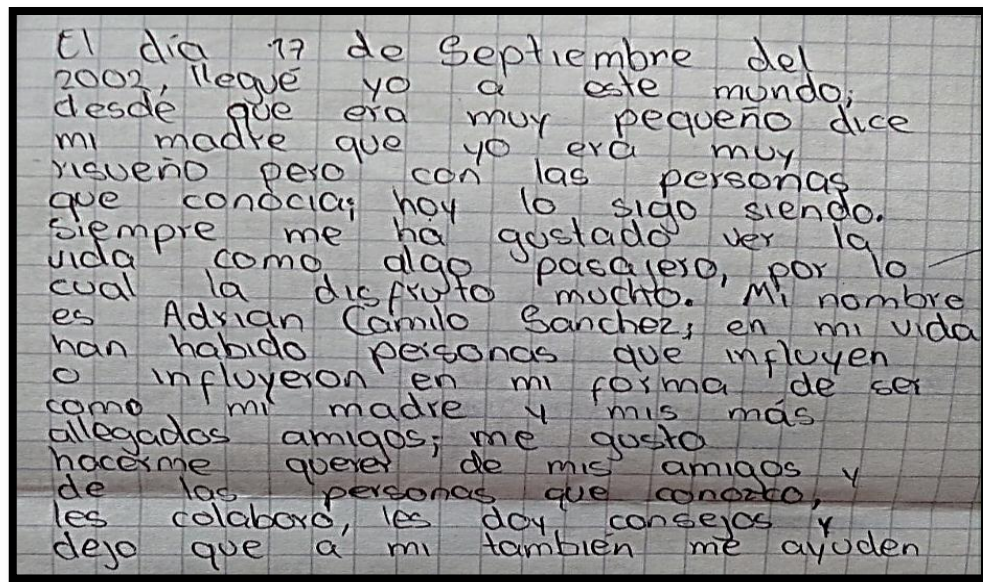 El día 17 de Septiembre del
2002, llegué yo a este mundo;
desde que era muy pequeño dice
mi madre que yo era muy
risueño pero con las personas
que conocía; hoy lo sigo siendo.
Siempre me ha gustado ver la
vida como algo pasajero, por lo
cual la disfruto mucho. Mi nombre
es Adrian Camilo Sanchez; en mi vida
han habido personas que influyen
o influyeron en mi forma de ser
como mi madre y mis más
allegados amigos; me gusto
hacerme querer de mis amigos y
de las personas que conozco,
les colaboro, les doy consejos y
dejo que a mi también me ayuden